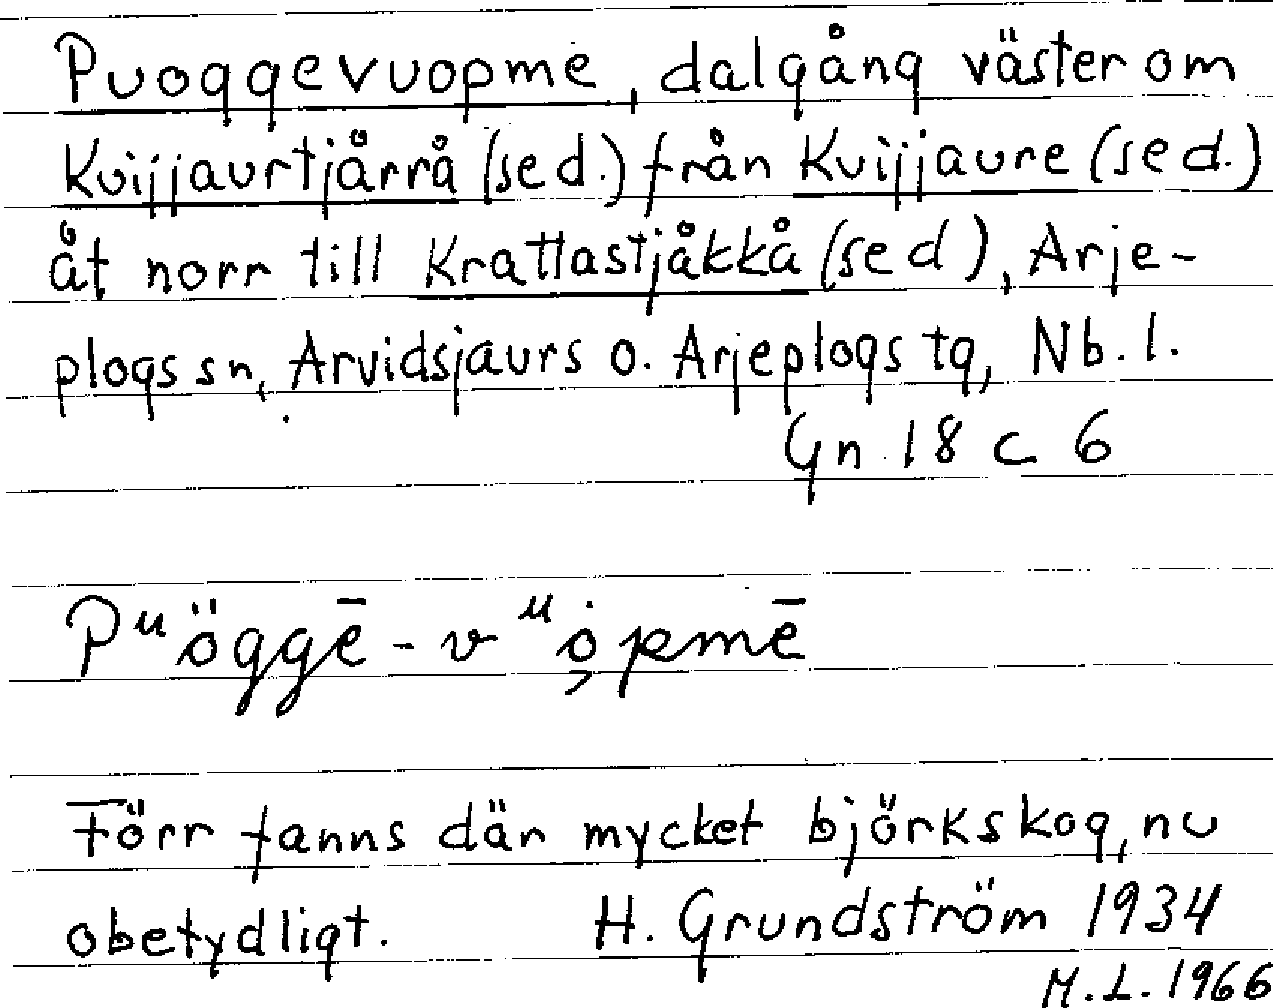 Puoggevuopme, dalgång väster om
Kvijjaurtjårrå (se d.) från Kvijjaure (se d.)
åt norr till Krattastjåkkå (se d), Arje-
plogs sn, Arvidsjaurs o. Arjeplogs tg, Nb. l.
Gn 18 c 6
Pᵘöggē - vᵘȯ̦pmē
Förr fanns där mycket björkskog, nu
obetydligt. H. Grundström 1934
M. L. 1966